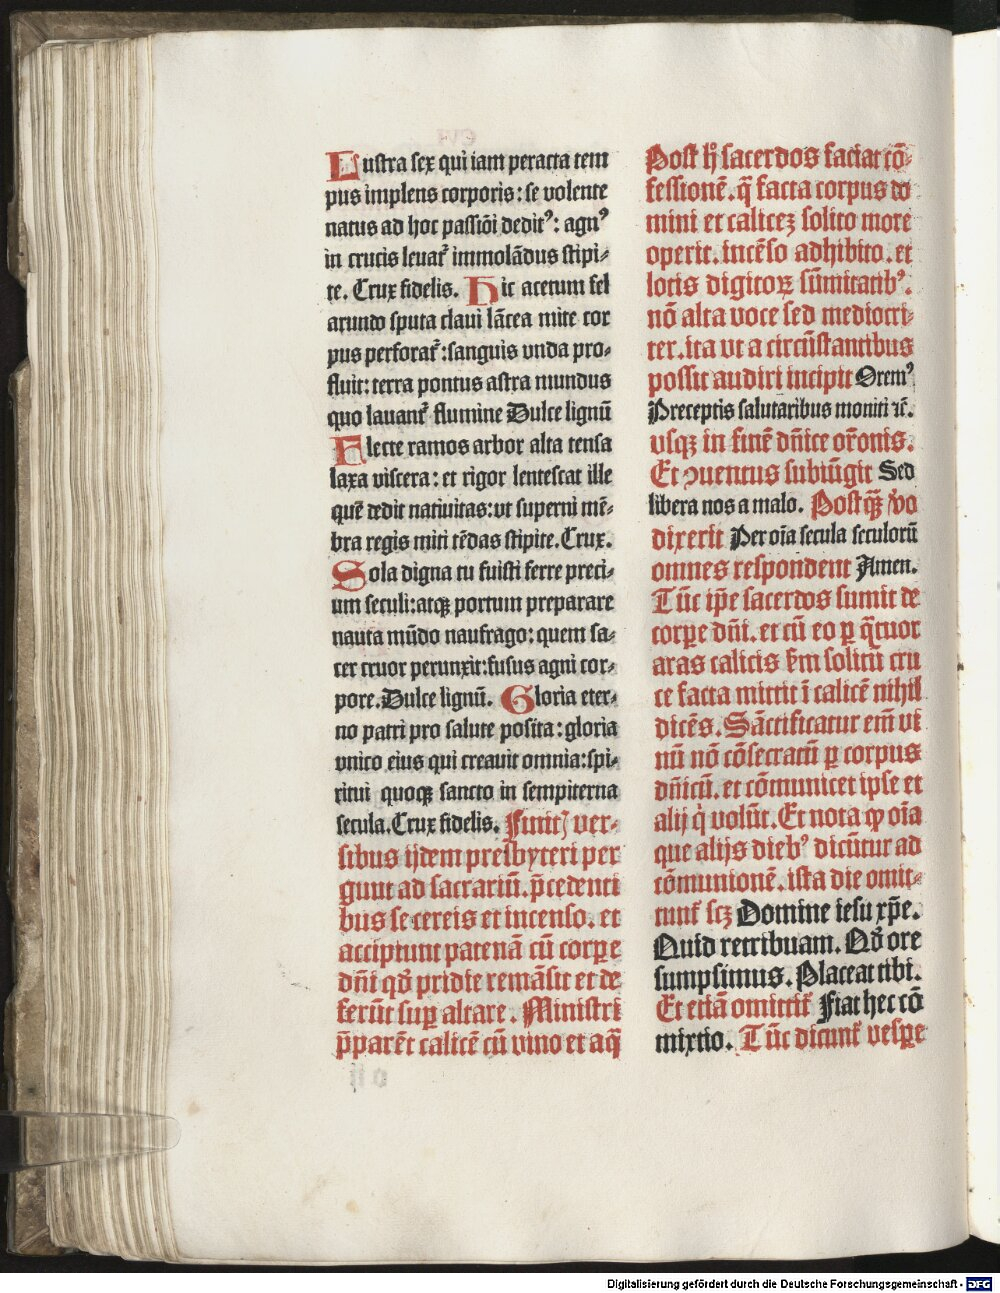 Lustra sex qui iam peracta tem
pus implens corporis: se volente
natus ad hoc passiōi deditꝰ: agnꝰ
in crucis leuat᷑ immolādus stipi⸗
te. Crux fidelis. Hic acetum fel
arundo sputa claui lācea mite cor
pus perforat᷑: sanguis vnda pro⸗
fluit: terra pontus astra mundus
quo lauant᷑ flumine Dulce lignū
Flecte ramos arbor alta tensa
laxa viscera: et rigor lentescat ille
quē dedit natiuitas: vt superni mē⸗
bra regis miti tēdas stipite. Crux.
Sola digna tu fuisti ferre preci⸗
um seculi: atqꝫ portum preparare
nauta mūdo naufrago: quem sa⸗
cer cruor perunxit: fusus agni cor⸗
pore. Dulce lignū. Gloria eter⸗
no patri pro salute posita: gloria
vnico eius qui creauit omnia: spi⸗
ritui quoqꝫ sancto in sempiterna
secula. Crux fidelis. Finitꝭ ver⸗
sibus ijdem presbyteri per
gunt ad sacrariū. p̄cedenti
bus se cereis et incenso. et
accipiunt patenā cū corꝑe
dn̄i qd̓ pridie remāsit et de
ferūt suꝑ altare. Ministri
p̄parēt calicē cū vino et aq̄
Post h̥ sacerdos faciat cō⸗
fessionē. q̄ facta corpus do
mini et caliceꝫ solito more
operit. incēso adhibito. et
lotis digitoꝝ sūmitatibꝰ.
nō alta voce sed mediocri⸗
ter. ita vt a circūstantibus
possit audiri incipit Oremꝰ
Preceptis salutaribus moniti ⁊c̄.
vsqꝫ in finē dn̄ice or̄onis.
Et ꝯuentus subiūgit Sed
libera nos a malo. Postqꝫ̄ v̓o
dixerit Per oīa secula seculorū
omnes respondent Amen.
Tūc ip̄e sacerdos sumit de
corꝑe dn̄i. et cū eo ꝑ q̄tuor
aras calicis s̄m solitū cru
ce facta mittit ī calicē nihil
dicēs. Sāctificatur em̄ vi
nū nō cōsecratū ꝑ corpus
dn̄icū. et cōmunicet ipse et
alij q̇ volūt. Et nota ꝙ oīa
que alijs diebꝰ dicūtur ad
cōmunionē. ista die omit⸗
tunt᷑ scꝫ Domine iesu xp̄e.
Quid retribuam. Qd̓ ore
sumpsimus. Placeat tibi.
Et etiā omittit᷑ Fiat hec cō
mixtio. Tūc dicunt᷑ vesꝑe
Digitalisierung gefördert durch die Deutsche Forschungsgemeinschaft - DFG